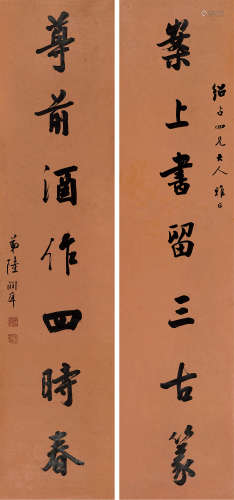 紹占四兄大人雅正
案上書留三古篆
尊前酒作四時春
弟陸潤庠